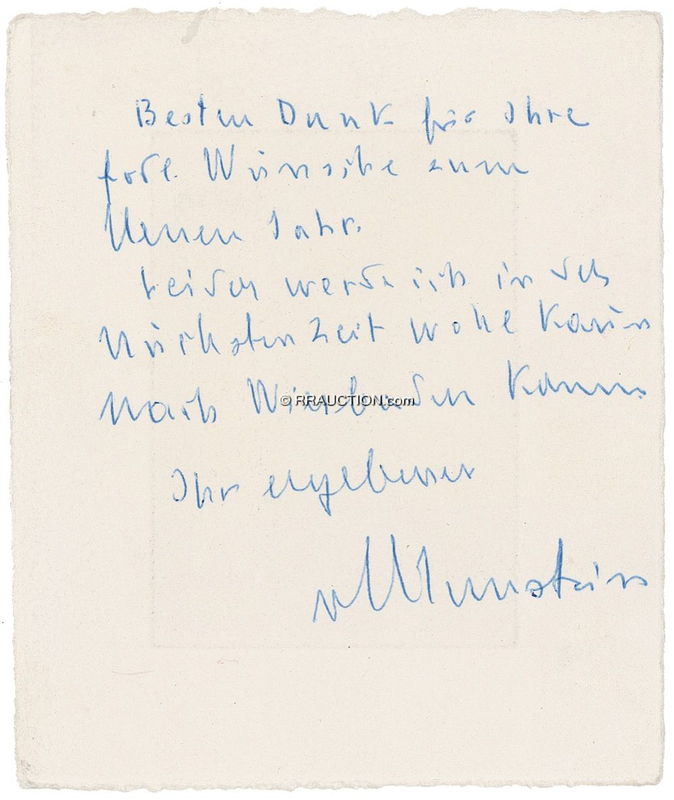 Besten Dank für Ihre
frdl. Wünsche zum
Neuen Jahr.
Leider werde ich in der
nächsten Zeit wohl kaum
nach Wiesbaden kommen.
© RRAUCTION.com
Ihr ergebener
v Manstein